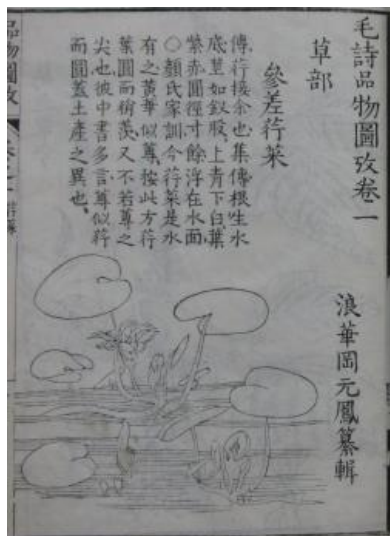 毛詩品物圖攷卷一
草部
浪華岡元鳳纂輯
參差荇菜
傳、荇接余也、集傳根生水
底、莖如釵股、上青下白、葉
紫赤圓徑寸餘、浮在水面、
○顏氏家訓、今荇菜是水
有之、黃華似蓴、按此方荇
葉圓而稍羨、又不若蓴之
尖也、彼中書多言蓴似荇
而圓、蓋土產之異也、
品物圖攷